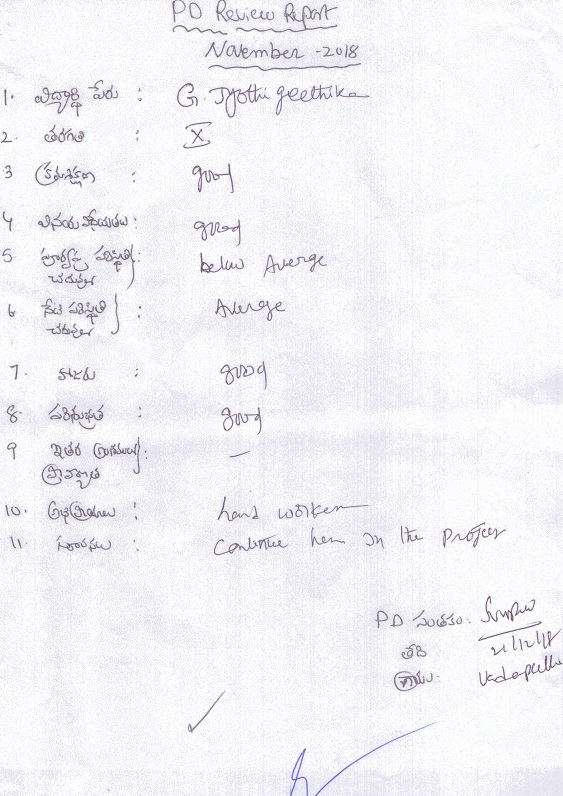 PD Review Report
November - 2018
1. విద్యార్థి పేరు : G. Jyothi geethika
2. తరగతి : X
3 క్రమశిక్షణ : good
4 వినయ విధేయతలు : good
5 పూర్వపు పరిస్థితి చదువులో : below Averge
6 నేటి పరిస్థితి చదువులో : Averge
7. హాజరు : good
8. పరిశుభ్రత : good
9 ఇతర : —
ప్రావీణ్యత
10. అభిప్రాయాలు : hard worker
11. సూచనలు : Continue her in the Project
PD సంతకం:
తేది 21/12/18
Vadapalli